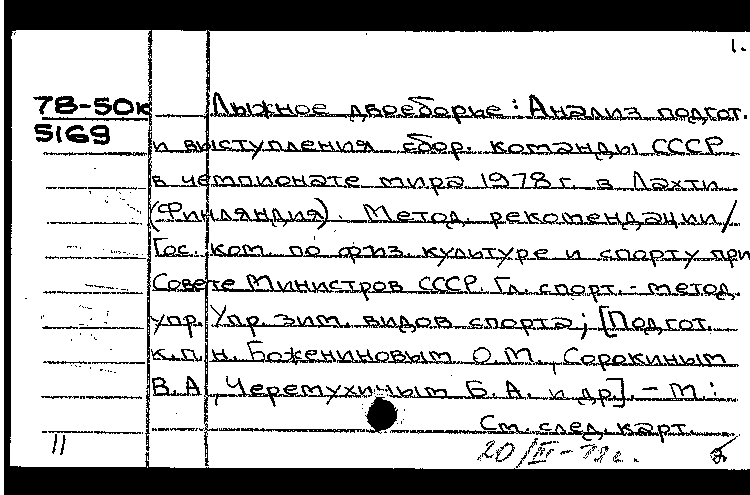 1.
78-50к Лыжное двоеборье: Анализ подгот.
5169 и выступления сбор. команды СССР
в чемпионате мира 1978 г. в Лахти
(Финляндия). Метод. рекомендации/
Гос. ком. по физ. культуре и спорту при
Совете Министров СССР. Гл. спорт.-метод.
упр. Упр. зим. видов спорта; [Подгот.
к.п.н. Божениновым О.М., Сорокиным
В.А., Черемухиным Б.А. и др.]. - М.:
См. след. карт.
11 20/III-79 г.